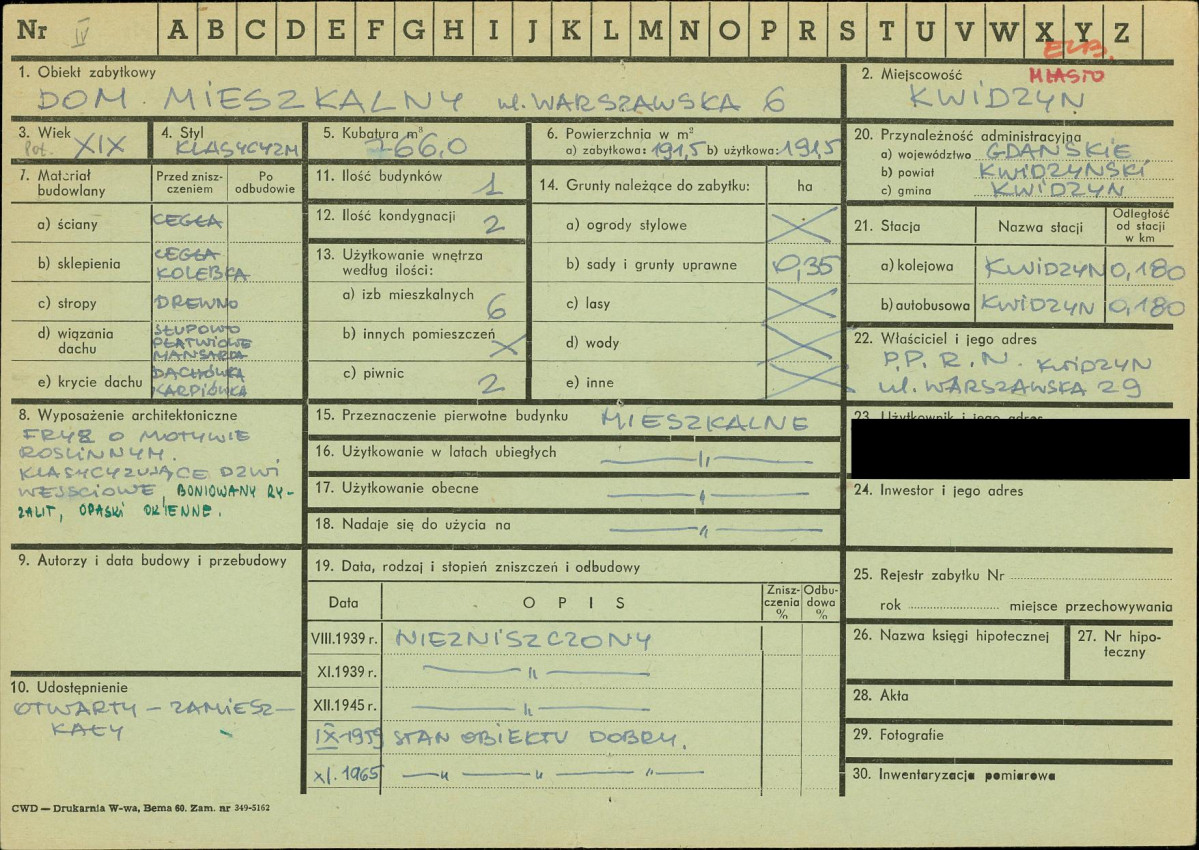 Nr IV A B C D E F G H I J K L M N O P R S T U V W X Y Z
ELB.
MIASTO
1. Obiekt zabytkowy
DOM MIESZKALNY ul. WARSZAWSKA 6
2. Miejscowość
KWIDZYN
3. Wiek
Poł. XIX
4. Styl
KLASYCYZM
5. Kubatura m³
766,0
6. Powierzchnia w m²
a) zabytkowa: 191,5 b) użytkowa: 191,5
20. Przynależność administracyjna
a) województwo GDAŃSKIE
b) powiat KWIDZYŃSKI
c) gmina KWIDZYN
7. Materiał budowlany
Przed zniszczeniem
Po odbudowie
a) ściany CEGŁA
b) sklepienia CEGŁA
KOLEBKA
c) stropy DREWNO
d) wiązania dachu SŁUPOWO
PŁATWIOWE
MANSARDA
e) krycie dachu DACHÓWKA
KARPIÓWKA
11. Ilość budynków 1
12. Ilość kondygnacji 2
13. Użytkowanie wnętrza
według ilości:
a) izb mieszkalnych 6
b) innych pomieszczeń
c) piwnic 2
14. Grunty należące do zabytku: ha
a) ogrody stylowe
b) sady i grunty uprawne 0,35
c) lasy
d) wody
e) inne
21. Stacja
Nazwa stacji
Odległość
od stacji
w km
a) kolejowa KWIDZYN 0,180
b) autobusowa KWIDZYN 0,180
22. Właściciel i jego adres
P.P.R.N. KWIDZYN
ul. WARSZAWSKA 29
8. Wyposażenie architektoniczne
FRYZ O MOTYWIE
ROSLINNYM.
KLASYCYZUJĄCE DZWI
WEJSCIOWE, BONIOWANY RY-
ZALIT, OPASKI OKIENNE.
15. Przeznaczenie pierwotne budynku MIESZKALNE
16. Użytkowanie w latach ubiegłych —"—
17. Użytkowanie obecne —"—
18. Nadaje się do użycia na —"—
23. Użytkownik i jego adres
24. Inwestor i jego adres
9. Autorzy i data budowy i przebudowy
19. Data, rodzaj i stopień zniszczeń i odbudowy
Data
OPIS
Zniszczenia %
Odbudowa %
VIII.1939 r. NIEZNISZCZONY
XI.1939 r. —"—
XII.1945 r. —"—
IX-1959 STAN OBIEKTU DOBRY.
XI. 1965 —"—"—"—
25. Rejestr zabytku Nr
rok miejsce przechowywania
26. Nazwa księgi hipotecznej
27. Nr hipo-
teczny
28. Akta
29. Fotografie
30. Inwentaryzacja pomiarowa
10. Udostępnienie
OTWARTY — ZAMIESZ-
KAŁY
CWD — Drukarnia W-wa, Bema 60. Zam. nr 349-5162